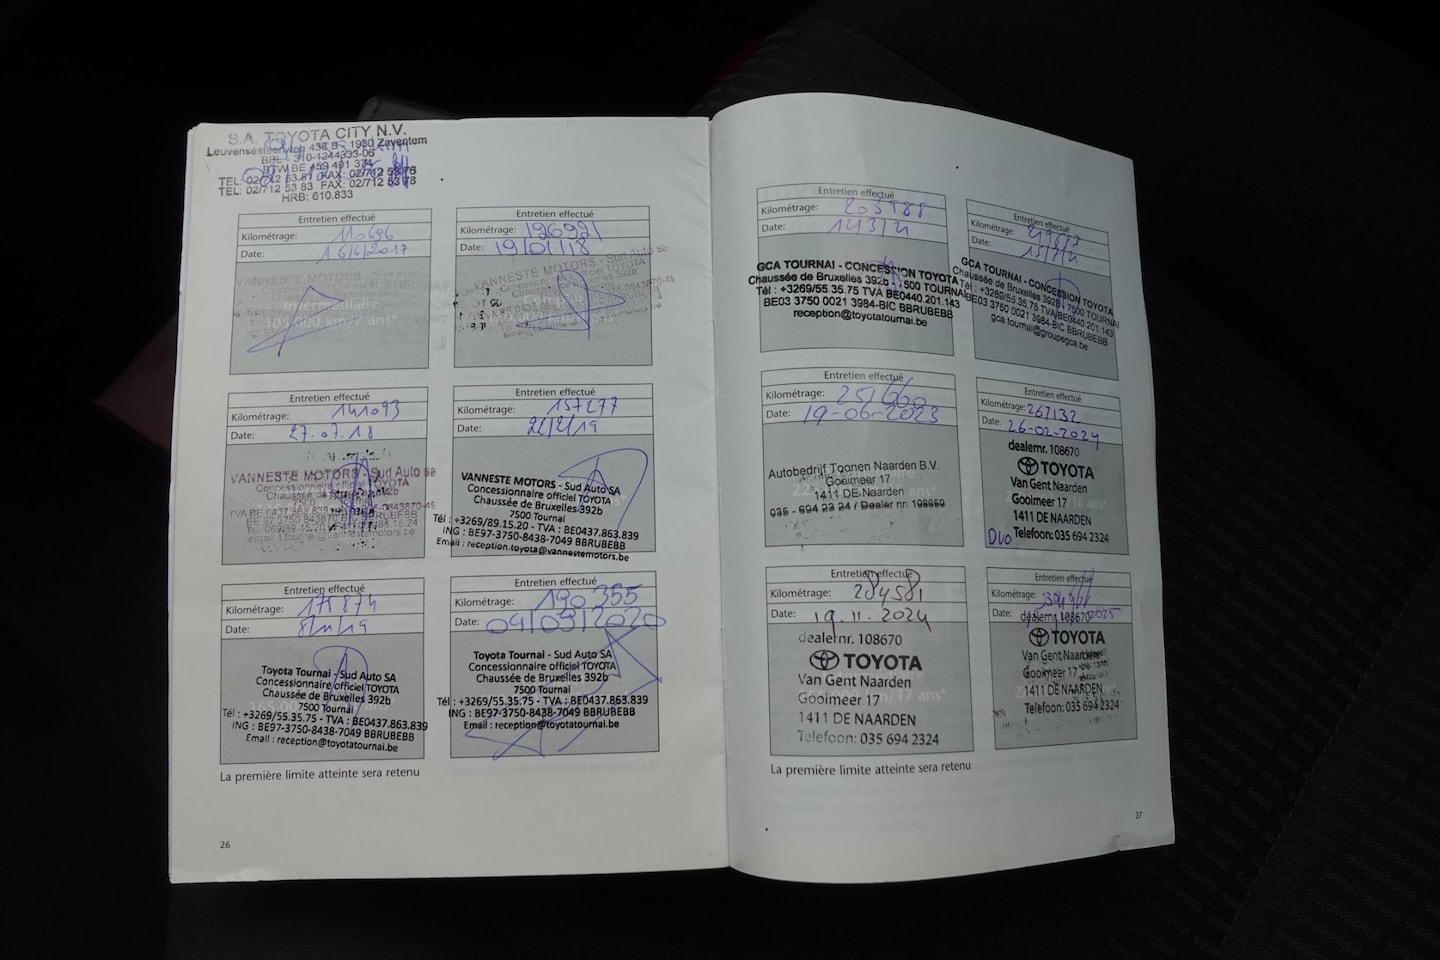 S.A. TOYOTA CITY N.V.
Leuvensesteenweg 438 B - 1930 Zaventem
BBL: 310-1244333-06
BTW BE 459 491 374
TEL: 02/712 53 81 FAX: 02/712 53 76
TEL: 02/712 53 83 FAX: 02/712 53 78
HRB: 610.833
Entretien effectué
Kilométrage: 110696
Date: 16/6/2017
VANNESTE MOTORS - Sud Auto
Entretien effectué
Kilométrage: 126921
Date: 19/01/18
VANNESTE MOTORS - Sud Auto sa
Entretien effectué
Kilométrage: 141093
Date: 27.07.18
VANNESTE MOTORS - Sud Auto sa
Concessionnaire officiel TOYOTA
Chaussée de Bruxelles 392b
7500
Entretien effectué
Kilométrage: 157297
Date: 22/2/19
VANNESTE MOTORS - Sud Auto SA
Concessionnaire officiel TOYOTA
Chaussée de Bruxelles 392b
7500 Tournai
Tél : +3269/89.15.20 - TVA : BE0437.863.839
ING : BE97-3750-8438-7049 BBRUBEBB
Email : reception.toyota@vannestemotors.be
Entretien effectué
Kilométrage: 175874
Date: 8/11/19
Toyota Tournai - Sud Auto SA
Concessionnaire officiel TOYOTA
Chaussée de Bruxelles 392b
7500 Tournai
Tél : +3269/55.35.75 - TVA : BE0437.863.839
ING : BE97-3750-8438-7049 BBRUBEBB
Email : reception@toyotatournai.be
Entretien effectué
Kilométrage: 190355
Date: 04/09/2020
Toyota Tournai - Sud Auto SA
Concessionnaire officiel TOYOTA
Chaussée de Bruxelles 392b
7500 Tournai
Tél : +3269/55.35.75 - TVA : BE0437.863.839
ING : BE97-3750-8438-7049 BBRUBEBB
Email : reception@toyotatournai.be
La première limite atteinte sera retenu
26
Entretien effectué
Kilométrage: 203988
Date: 14/3/21
GCA TOURNAI - CONCESSION TOYOTA
Chaussée de Bruxelles 392b - 7500 TOURNAI
Tél : +3269/55.35.75 TVA BE0440.201.143
BE03 3750 0021 3984-BIC BBRUBEBB
reception@toyotatournai.be
Entretien effectué
Kilométrage:
Date: 15/7/21
GCA TOURNAI - CONCESSION TOYOTA
Chaussée de Bruxelles 392b - 7500 TOURNAI
Tél : +3269/55.35.75 TVA BE0440.201.143
BE03 3750 0021 3984-BIC BBRUBEBB
gca.tournai@groupegca.be
Entretien effectué
Kilométrage: 251660
Date: 19-06-2023
Autobedrijf Toonen Naarden B.V.
Gooimeer 17
1411 DE Naarden
035 - 694 23 24 / Dealer nr: 108669
Entretien effectué
Kilométrage: 267132
Date: 26-02-2024
dealernr. 108670
TOYOTA
Van Gent Naarden
Gooimeer 17
1411 DE NAARDEN
Telefoon: 035 694 2324
DUO
Entretien effectué
Kilométrage: 284581
Date: 19.11.2024
dealernr. 108670
TOYOTA
Van Gent Naarden
Gooimeer 17
1411 DE NAARDEN
Telefoon: 035 694 2324
Entretien effectué
Kilométrage:
Date: 2025
dealernr. 108670
TOYOTA
Van Gent Naarden
Gooimeer 17
1411 DE NAARDEN
Telefoon: 035 694 2324
La première limite atteinte sera retenu
27